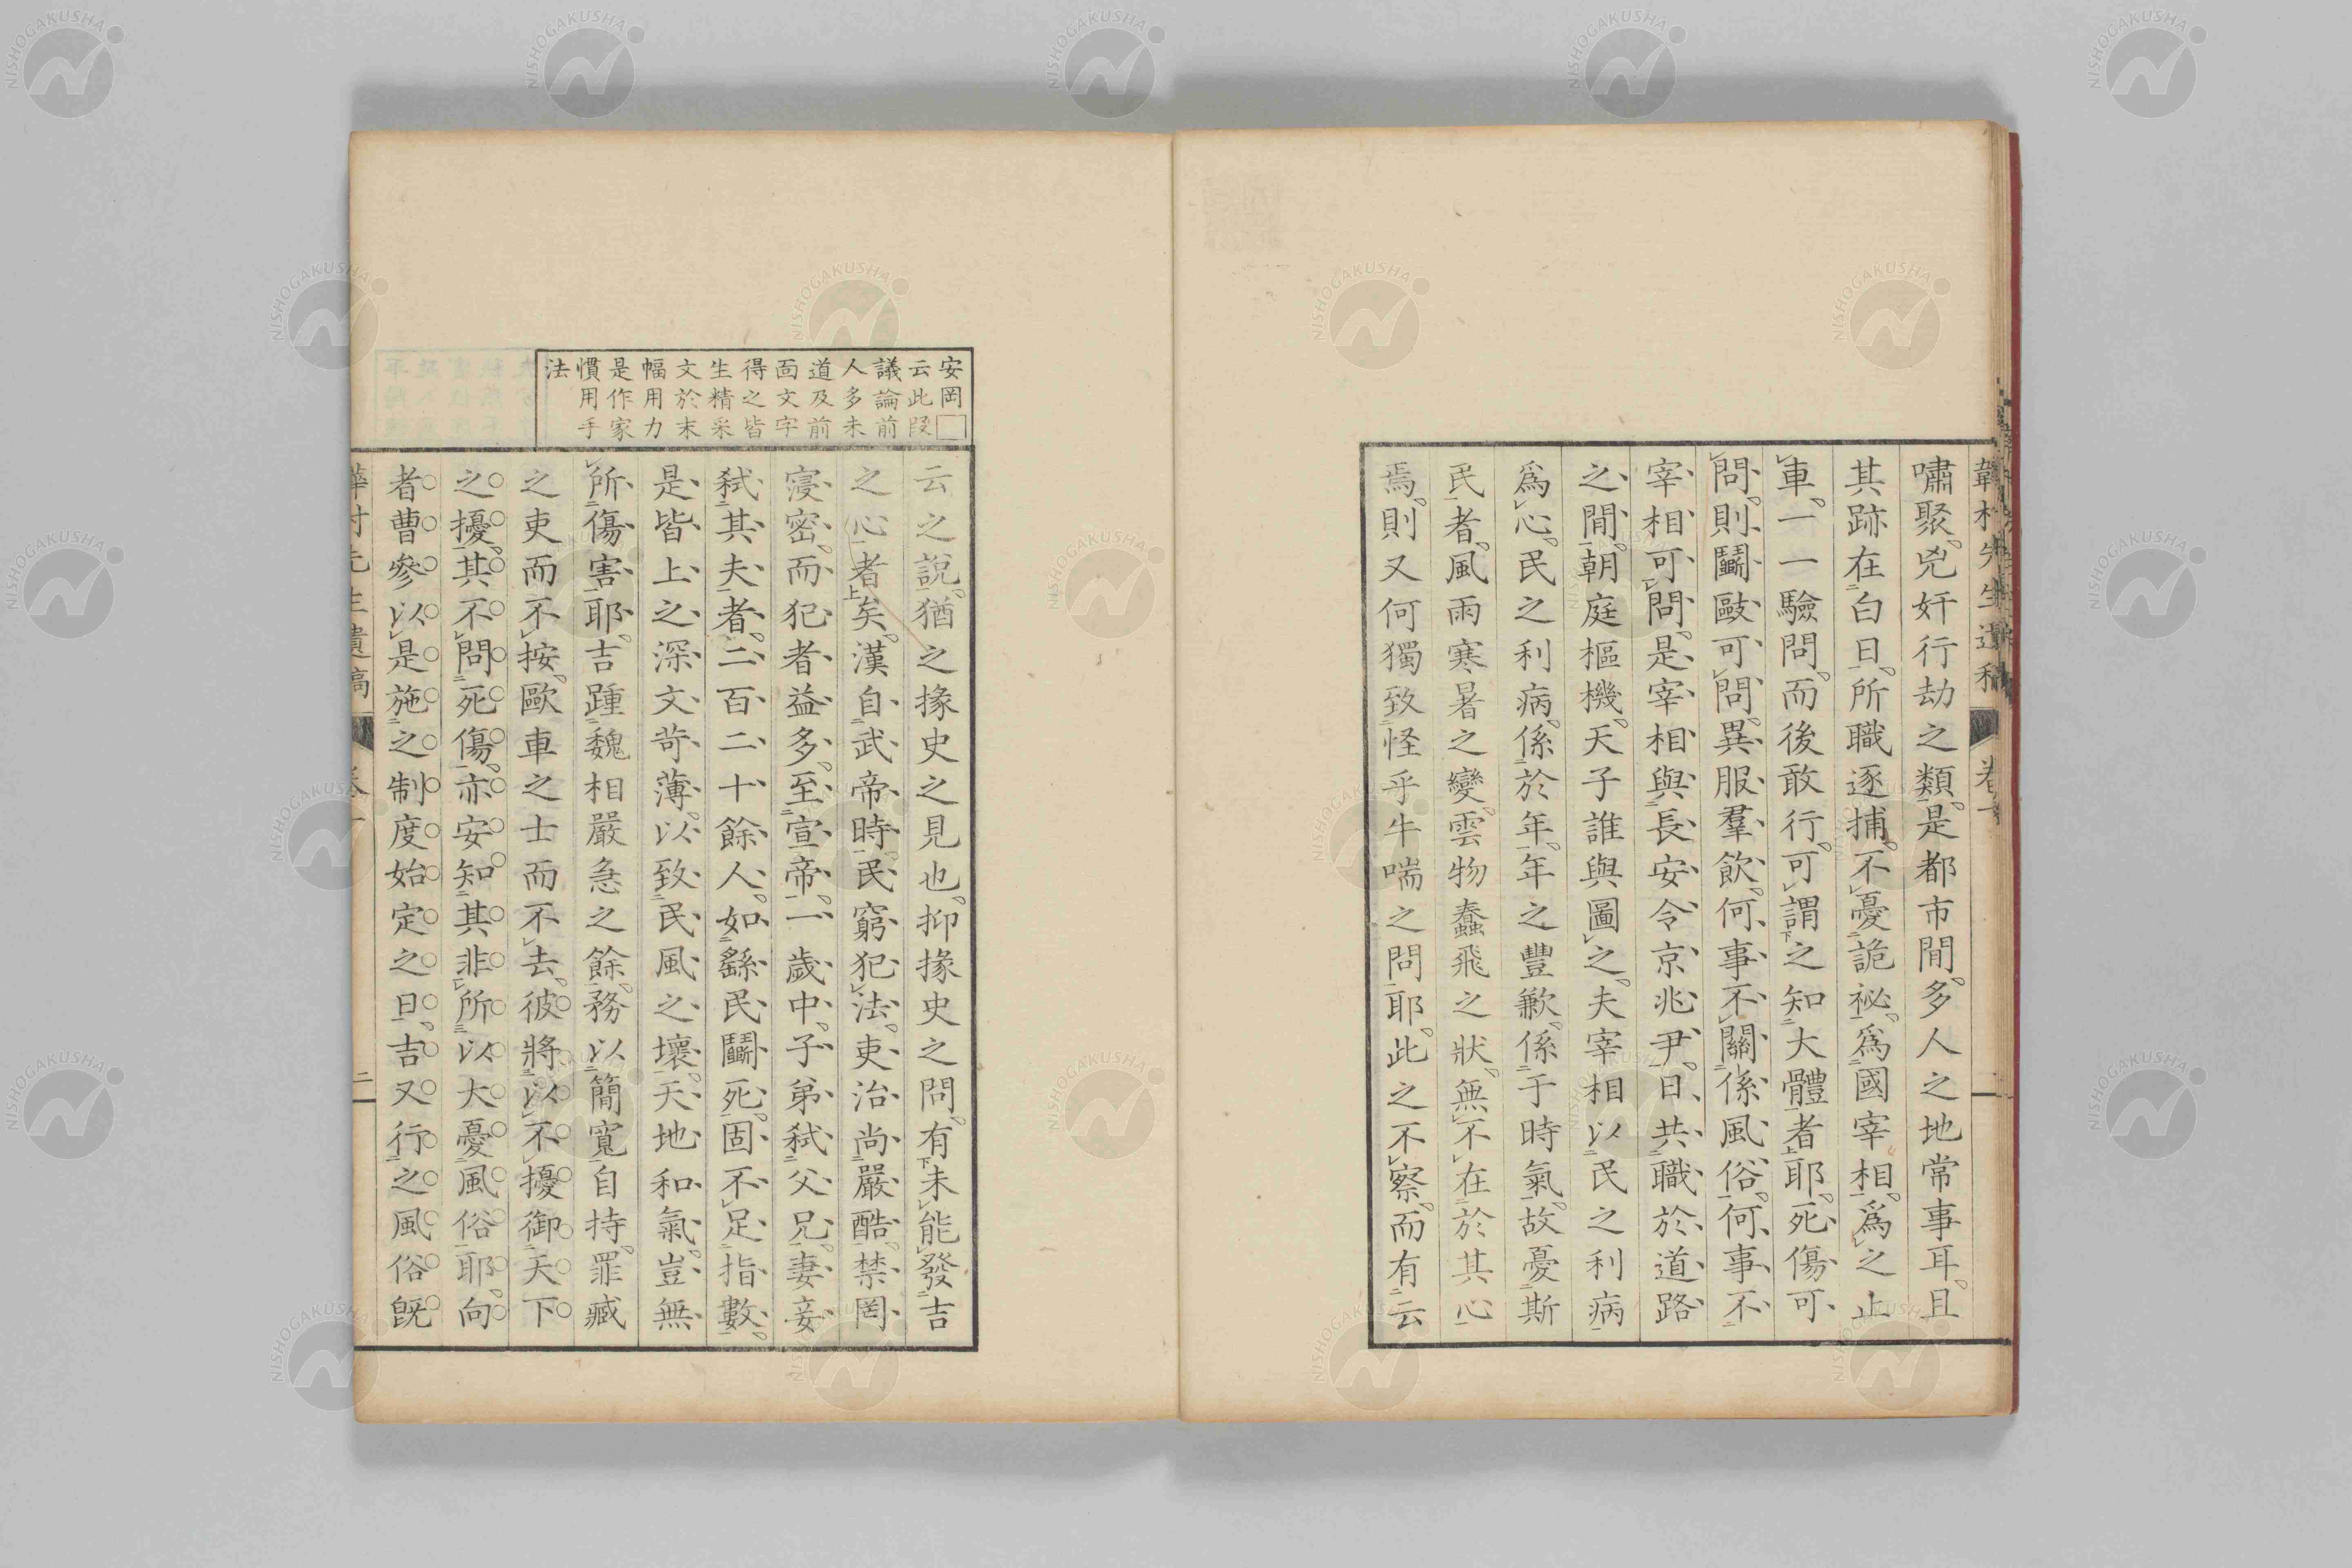 嘯聚兇奸行劫之類是都市間多人之地常事耳且
其跡在白日所職逐捕不憂詭祕爲國宰相爲之止
車一一驗問而後敢行可謂之知大體者耶死傷可
問則鬭毆可問異服羣飲何事不關係風俗何事不
宰相可問是宰相與長安令京兆尹日共職於道路
之間朝庭樞機天子誰與圖之夫宰相以民之利病
爲心民之利病係於年年之豐歉係于時氣故憂斯
民者風雨寒暑之變雲物蠢飛之狀無不在於其心
焉則又何獨致怪乎牛喘之問耶此之不察而有云
安岡
云此段
議論前
人多未
道及前
面文字
得之皆
生精采
文於末
幅用力
是作家
慣用手
法
云之說猶之掾史之見也抑掾史之問有未能發吉
之心者矣漢自武帝時民窮犯法吏治尚嚴酷禁罔
寖密而犯者益多至宣帝一歲中子弟弒父兄妻妾
弒其夫者二百二十餘人如繇民鬭死固不足指數
是皆上之深文苛薄以致民風之壞天地和氣豈無
所傷害耶吉踵魏相嚴急之餘務以簡寬自持罪臧
之吏而不按歐車之士而不去彼將以不擾御天下
之擾其不問死傷亦安知其非所以大憂風俗耶向
者曹參以是施之制度始定之日吉又行之風俗既
先生遺稿
卷一
二
NISHOGAKUSHA